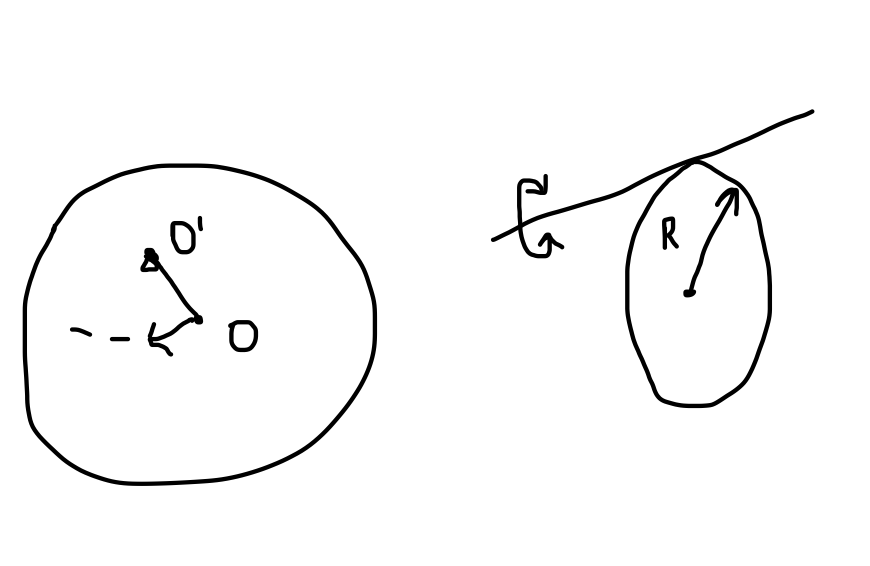 O'
O
R